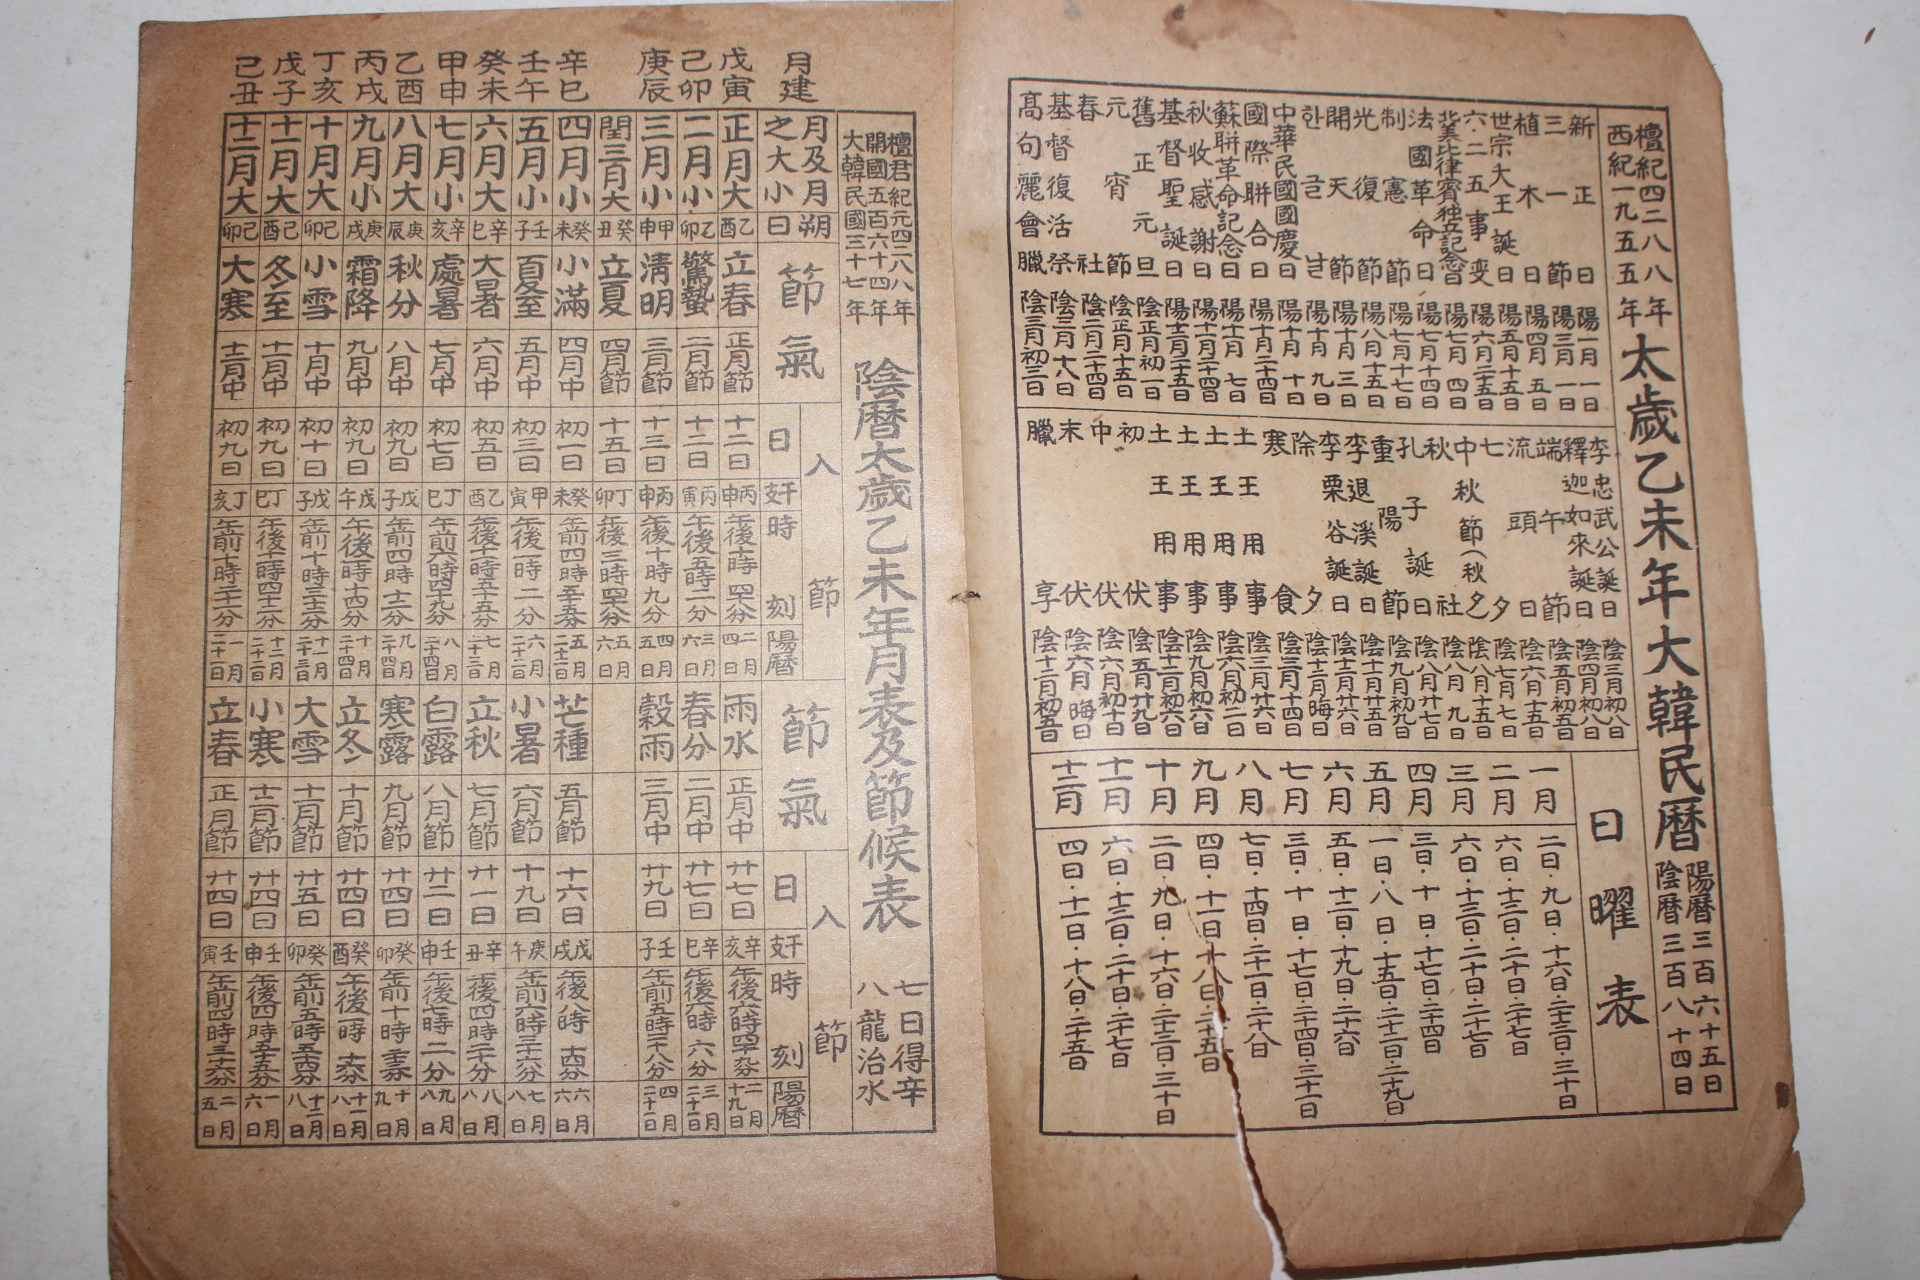 檀紀四二八八年
西紀一九五五年
太歲乙未年大韓民曆
陽曆三百六十五日
陰曆三百八十四日
新正日 陽一月一日
三一節 陽三月一日
植木日 陽四月五日
世宗大王誕日 陽五月十五日
六·二五事変 陽六月二五日
北美比律賓独立記念日 陽七月四日
法國革命日 陽七月十四日
制憲節 陽七月十七日
光復節 陽八月十五日
開天節 陽十月三日
한글날 陽十月九日
中華民國國慶日 陽十月十日
國際聯合日 陽十月二四日
蘇聯革命記念日 陽十一月七日
秋收感謝日 陽十一月二四日
基督聖誕日 陽十二月二五日
舊正元旦 陰正月初一日
元宵節 陰正月十五日
春社 陰二月二十四日
基督復活祭 陰三月十八日
高句麗會臘 陰三月初三日
李忠武公誕日 陰三月初八日
釋迦如來誕日 陰四月初八日
端午節 陰五月初五日
流頭日 陰六月十五日
七夕 陰七月七日
中秋節(秋夕) 陰八月十五日
秋社 陰八月九日
孔子誕日 陰八月廿七日
重陽節 陰九月初九日
李退溪誕日 陰十一月廿五日
李栗谷誕日 陰十二月廿六日
除夕 陰十二月晦日
寒食 陰三月十四日
土王用事 陰三月廿六日
土王用事 陰六月初二日
土王用事 陰九月初六日
土王用事 陰十二月初六日
初伏 陰五月廿九日
中伏 陰六月初十日
末伏 陰六月晦日
臘享 陰十二月初五日
日曜表
一月 二日·九日·十六日·二十三日·三十日
二月 六日·十三日·二十日·二十七日
三月 六日·十三日·二十日·二十七日
四月 三日·十日·十七日·二十四日
五月 一日·八日·十五日·二十二日·二十九日
六月 五日·十二日·十九日·二十六日
七月 三日·十日·十七日·二十四日·三十一日
八月 七日·十四日·二十一日·二十八日
九月 四日·十一日·十八日·二十五日
十月 二日·九日·十六日·二十三日·三十日
十一月 六日·十三日·二十日·二十七日
十二月 四日·十一日·十八日·二十五日
檀君紀元四二八八年
開國五百六十四年
大韓民國三十七年
陰曆太歲乙未年月表及節候表
七日得辛
八龍治水
月建 月及月之大小 朔日 節氣 入節 日 干支 時刻 陽曆 節氣 入節 日 干支 時刻 陽曆
戊寅 正月大 乙酉 立春 正月節 十二日 丙申 二月四日 雨水 正月中 廿七日 辛亥 二月十九日
己卯 二月小 乙卯 驚蟄 二月節 十二日 丙寅 三月六日 春分 二月中 廿七日 辛巳 午後六時六分 三月二十一日
庚辰 三月小 甲申 淸明 三月節 十三日 丙申 午後十時九分 四月五日 穀雨 三月中 廿九日 壬子 四月二十一日
閏三月大 癸丑 立夏 四月節 十五日 丁卯 五月六日
辛巳 四月小 癸未 小滿 四月中 初一日 癸未 五月二十二日 芒種 五月節 十六日 戊戌 六月六日
壬午 五月小 壬子 夏至 五月中 初三日 甲寅 午後一時二分 六月二十二日 小暑 六月節 十九日 庚午 七月八日
癸未 六月大 辛巳 大暑 六月中 初五日 乙酉 七月二十三日 立秋 七月節 廿一日 辛丑 八月八日
甲申 七月小 辛亥 處暑 七月中 初七日 丁巳 八月二十四日 白露 八月節 廿二日 壬申 九月八日
乙酉 八月大 庚辰 秋分 八月中 初九日 戊子 九月二十四日 寒露 九月節 廿四日 癸卯 十月九日
丙戌 九月小 庚戌 霜降 九月中 初九日 戊午 十月二十四日 立冬 十月節 廿四日 癸酉 十一月八日
丁亥 十月大 己卯 小雪 十月中 初十日 戊子 十一月二十三日 大雪 十一月節 廿五日 癸卯 十二月八日
戊子 十一月大 己酉 冬至 十一月中 初九日 丁巳 十二月二十二日 小寒 十二月節 廿四日 壬申 一月六日
己丑 十二月大 己卯 大寒 十二月中 初九日 丁亥 一月二十一日 立春 正月節 廿四日 壬寅 二月五日